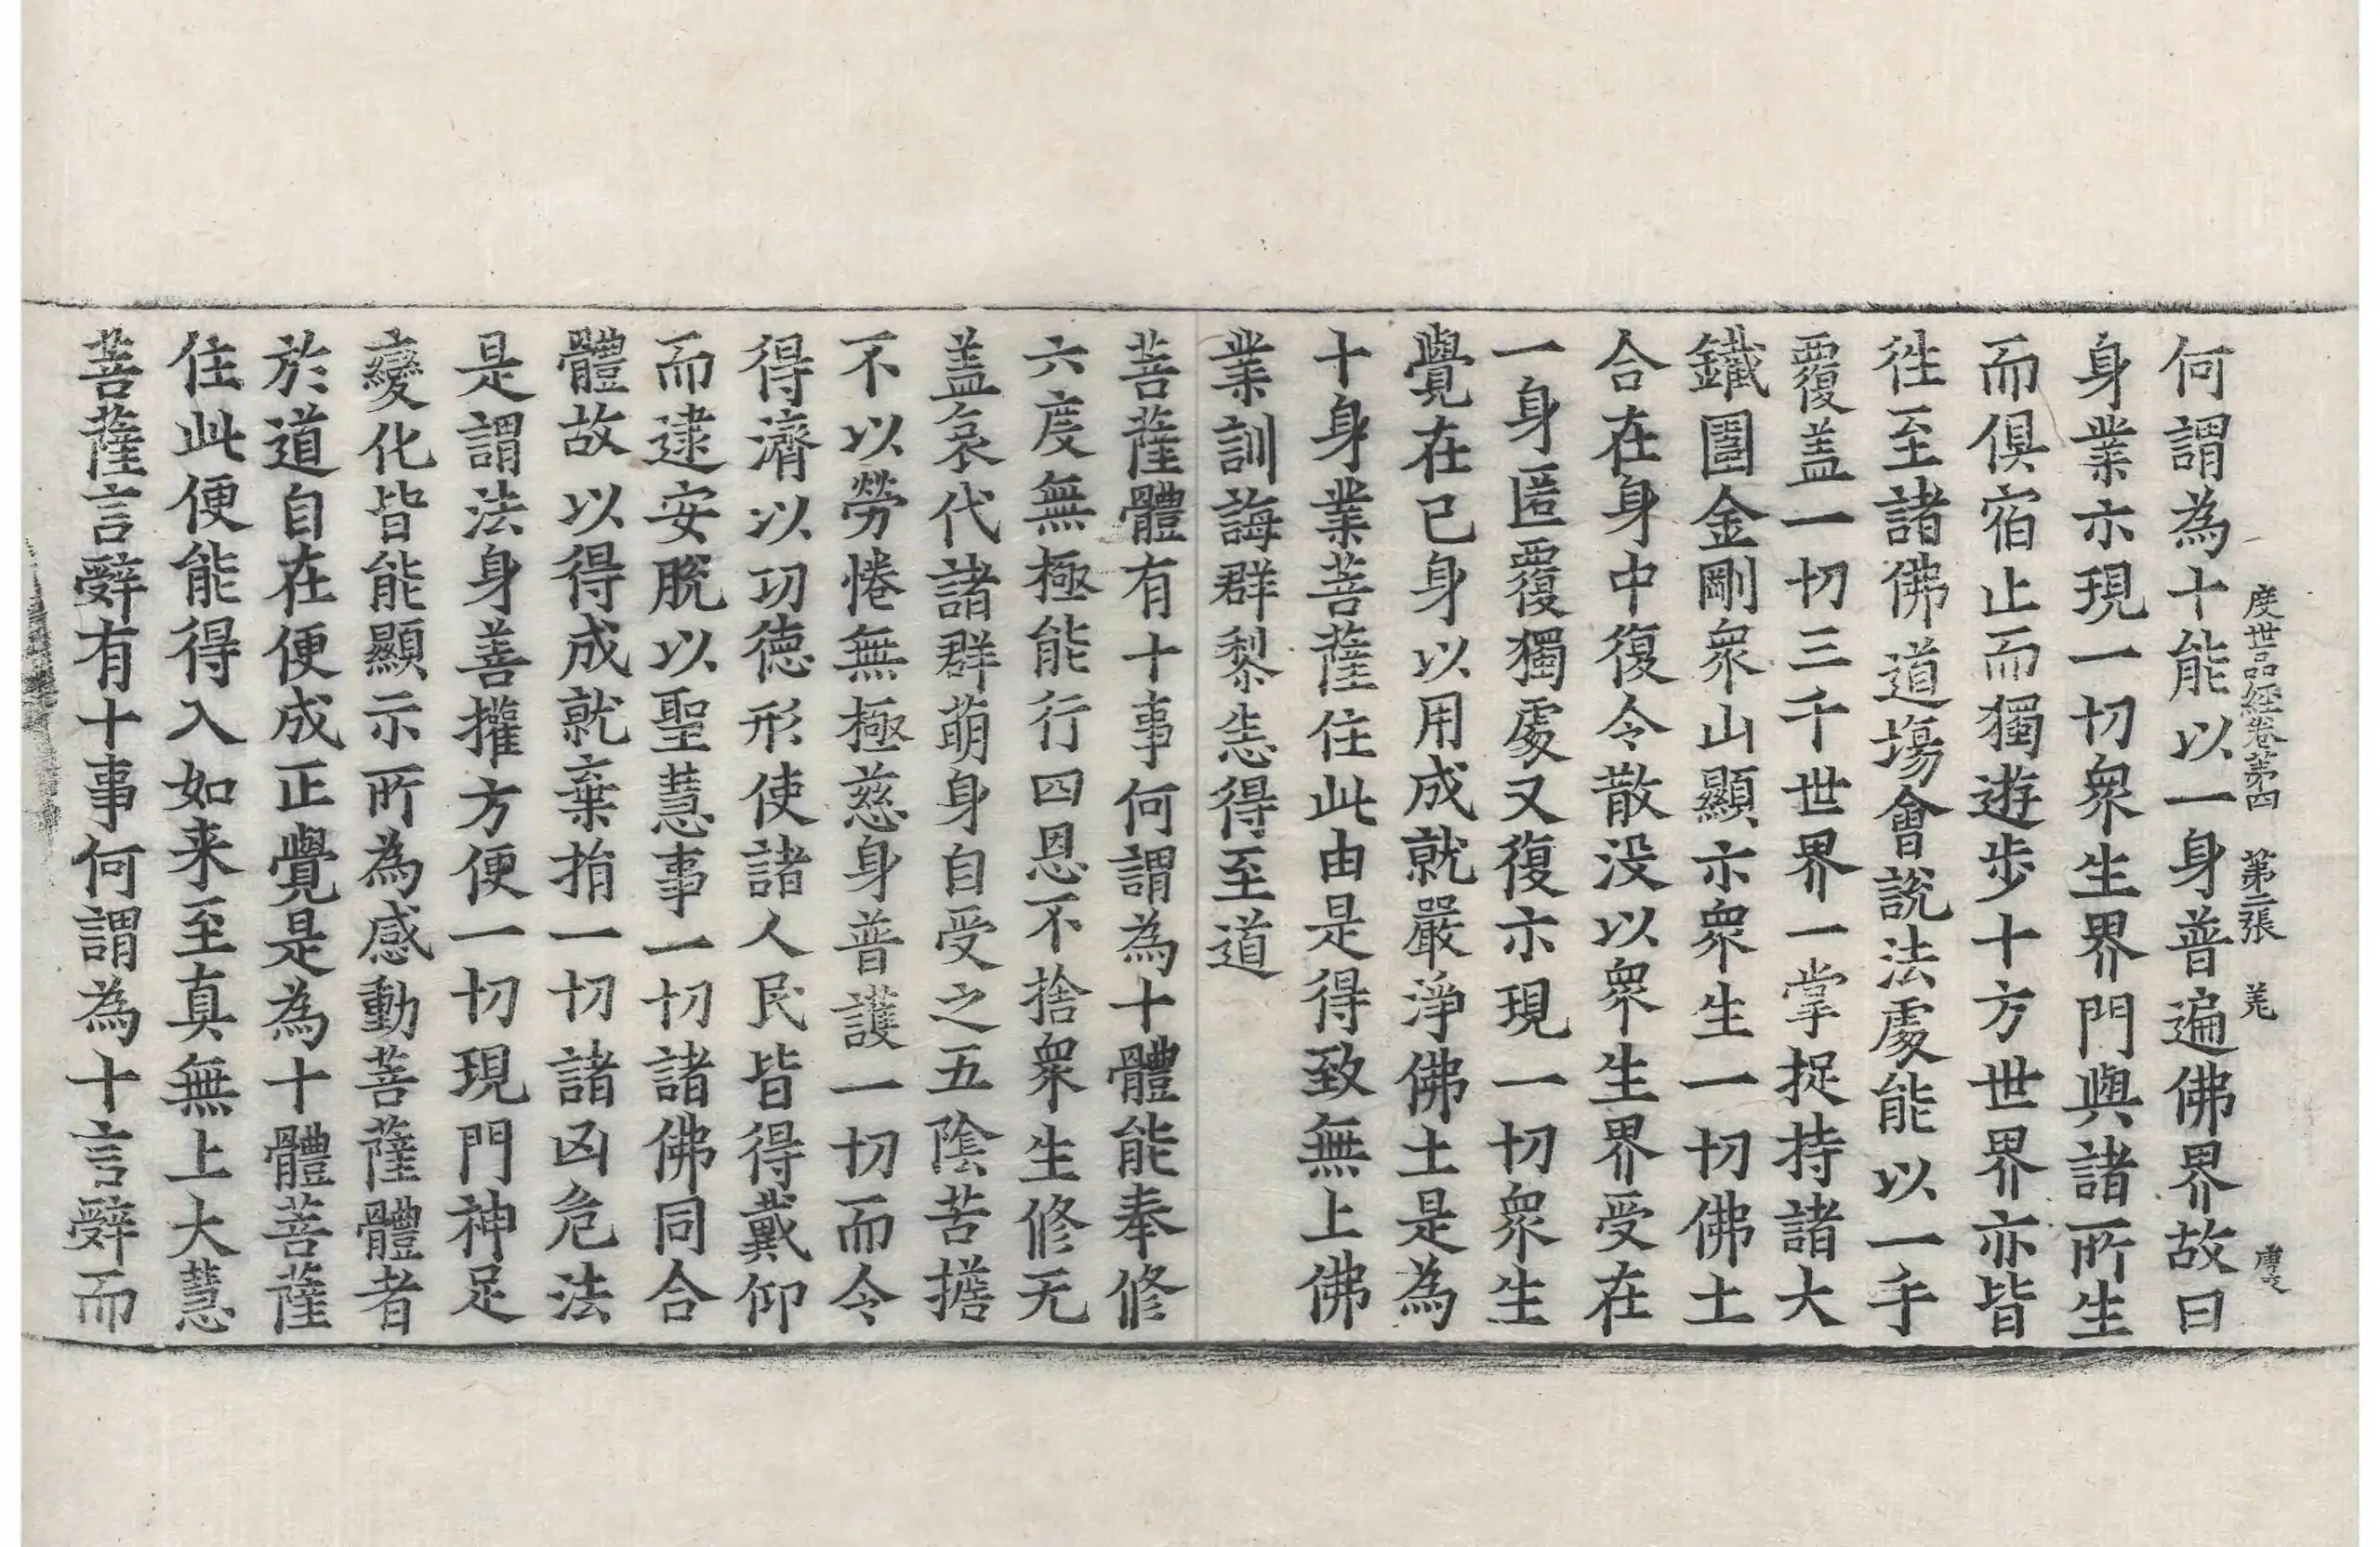 度世品經卷第四　第二張　羌
何謂為十能以一身普遍佛界故曰
身業示現一切衆生界門與諸所生
而俱宿止而獨遊步十方世界亦皆
徃至諸佛道塲會說法處能以一手
覆盖一切三千世界一掌捉持諸大
鐵圍金剛衆山顯示衆生一切佛土
合在身中復令散没以衆生界受在
一身匿覆獨處又復示現一切衆生
覺在已身以用成就嚴淨佛土是為
十身業菩薩住此由是得致無上佛
業訓誨群黎恙得至道
菩薩體有十事何謂為十體能奉修
六度無極能行四恩不捨衆生修无
盖哀代諸群萌身自受之五陰苦擔
不以勞惓無極慈身普護一切而令
得濟以功德形使諸人民皆得戴仰
而逮安脫以聖慧事一切諸佛同合
體故以得成就棄捐一切諸凶危法
是謂法身善權方便一切現門神足
變化皆能顯示所為感動菩薩體者
於道自在便成正覺是為十體菩薩
住此便能得入如来至真無上大慧
菩薩言辭有十事何謂為十言辭而